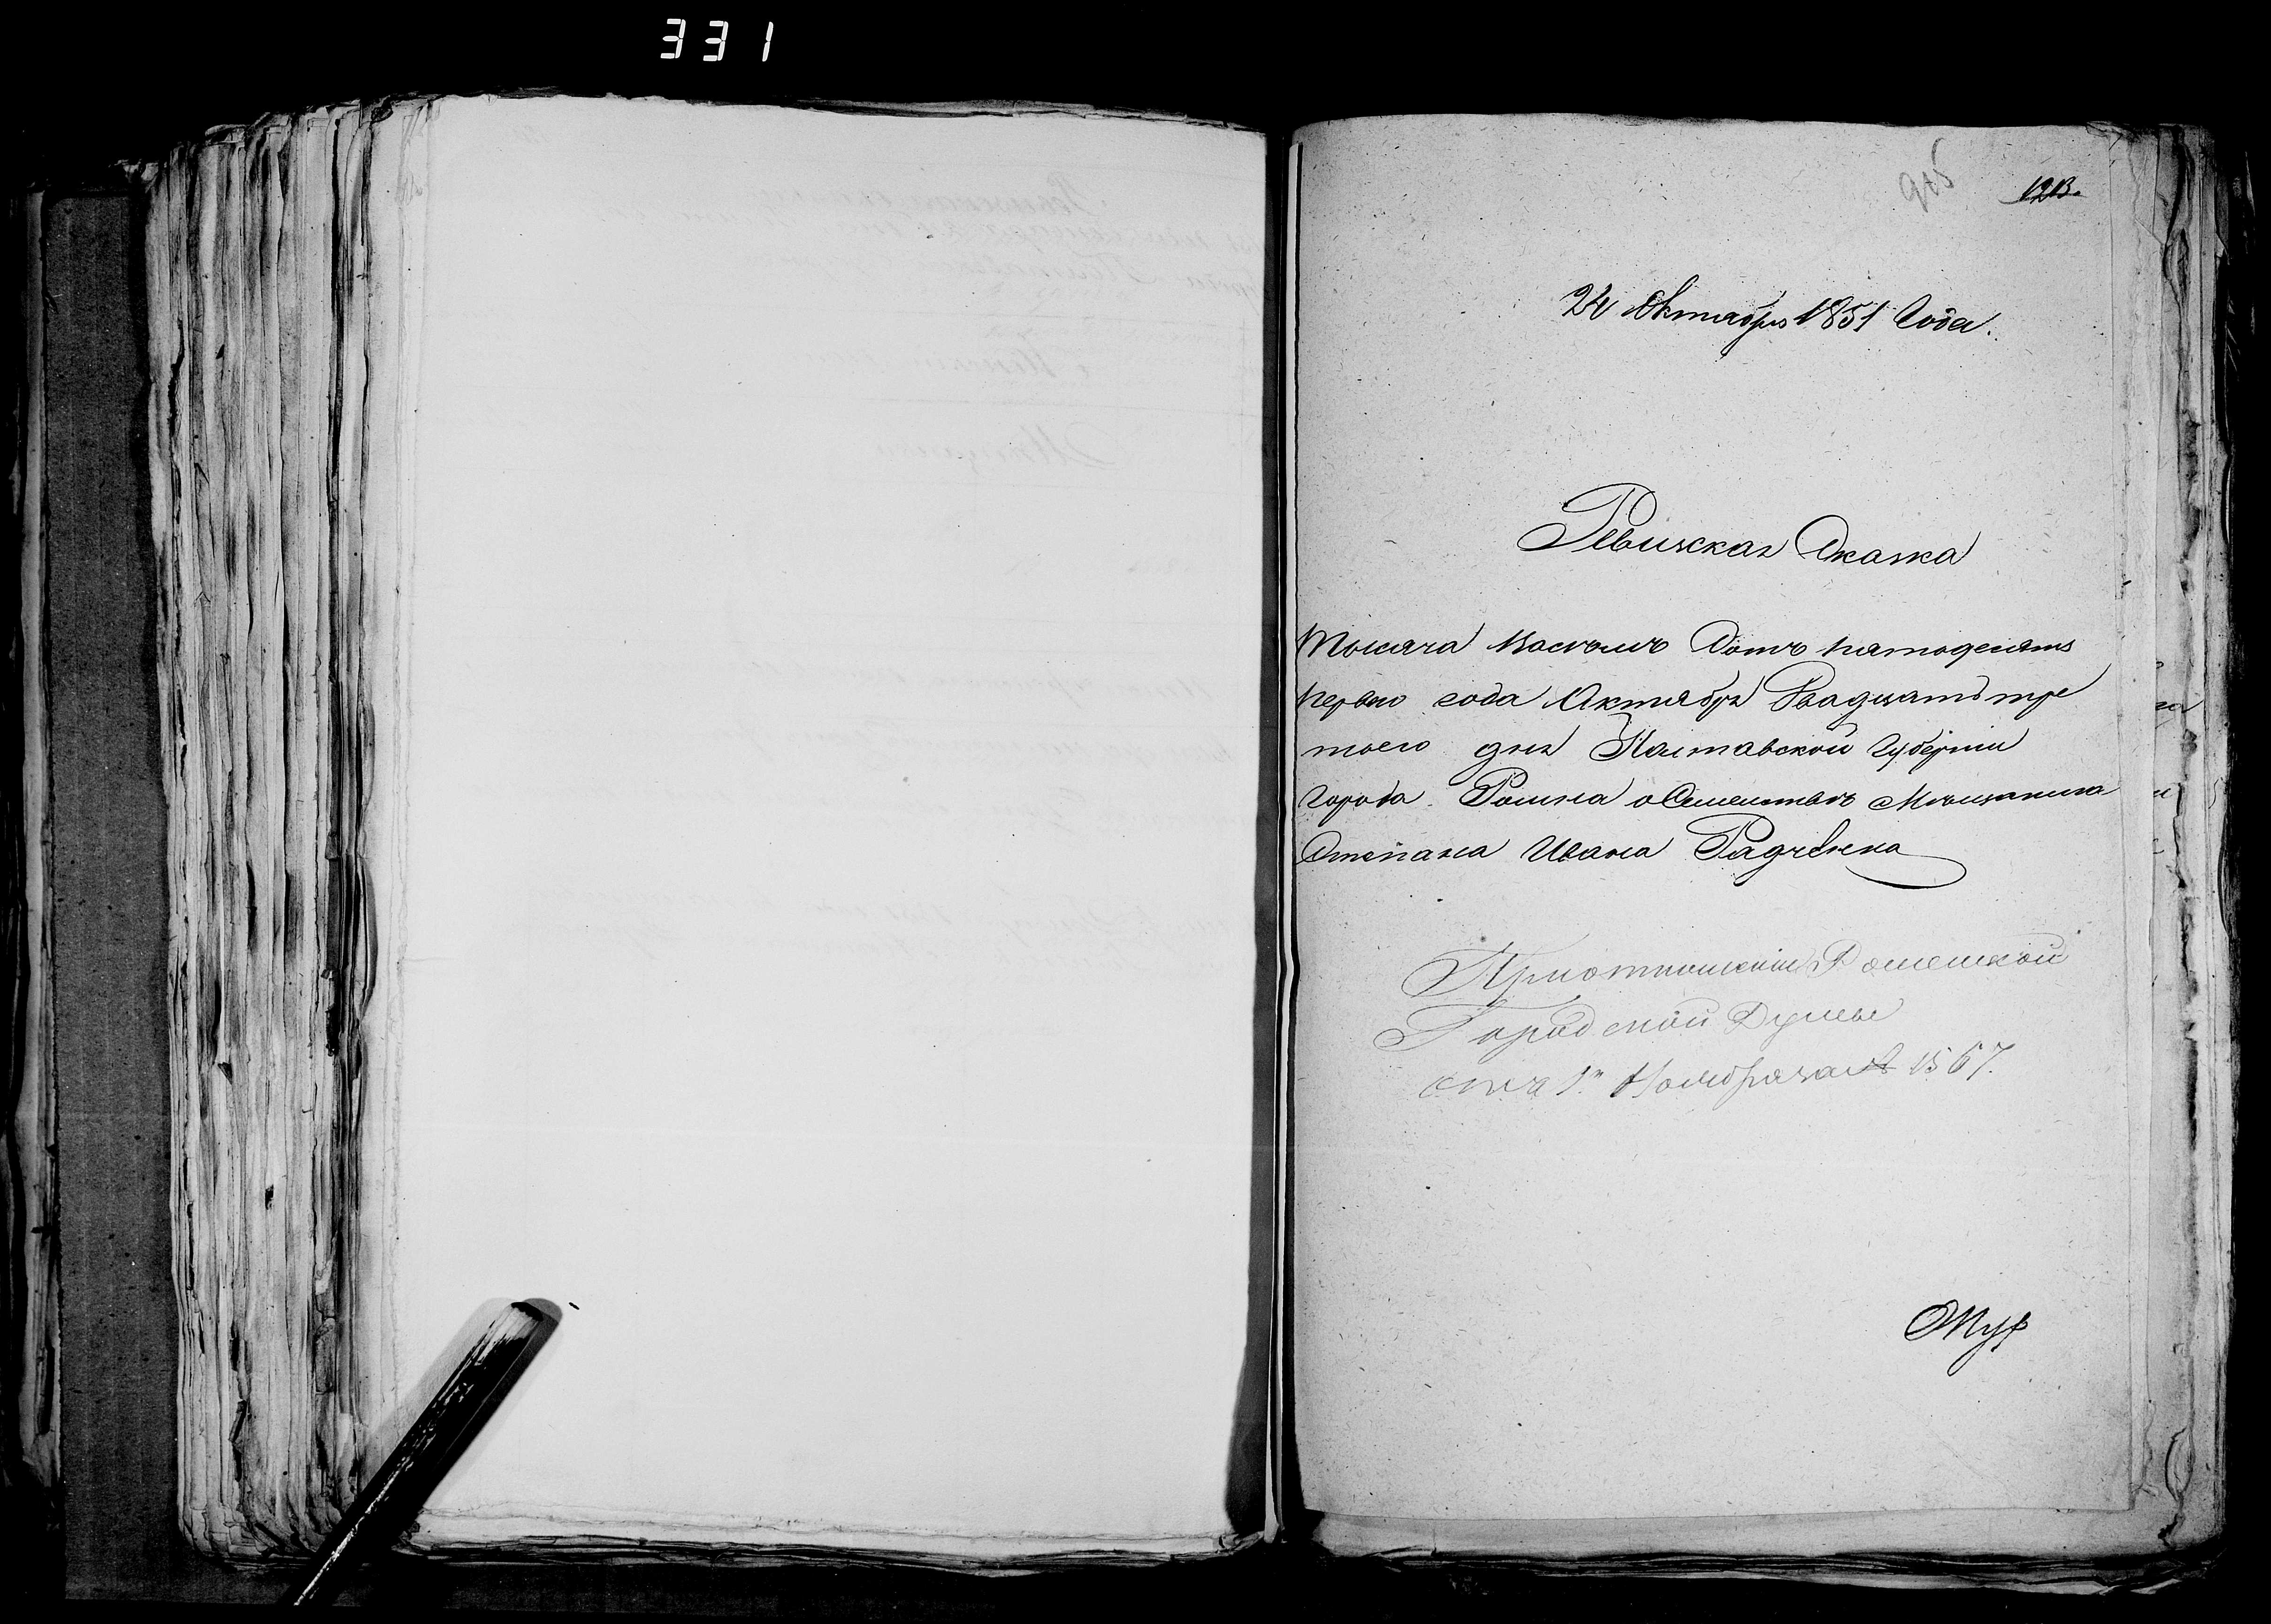 331
1213.
24 Октября 1851 Года.
Ревизская Сказка
Тысяча Восемъ Сотъ пятодесятъ
первого года Октября Двадцатътре
тьего дня Полтавской Губерніи
города Ромна о Семействъ Мещанина
Степана Ивана Радченка
Приотношеніи Роменской
Городской Думы
1го Ноября за № 1567.